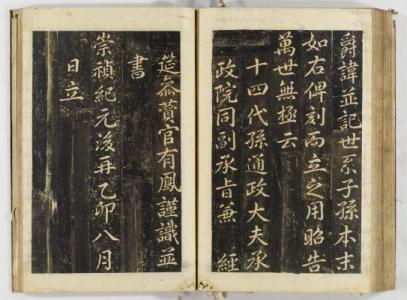 爵諱並記世系子孫本末
如右俾刻而立之用昭告
萬世無極云
十四代孫通政大夫承
政院同副承旨兼 經
筵叅賛官有鳳謹識並
書
崇禎紀元後再乙卯八月
日立